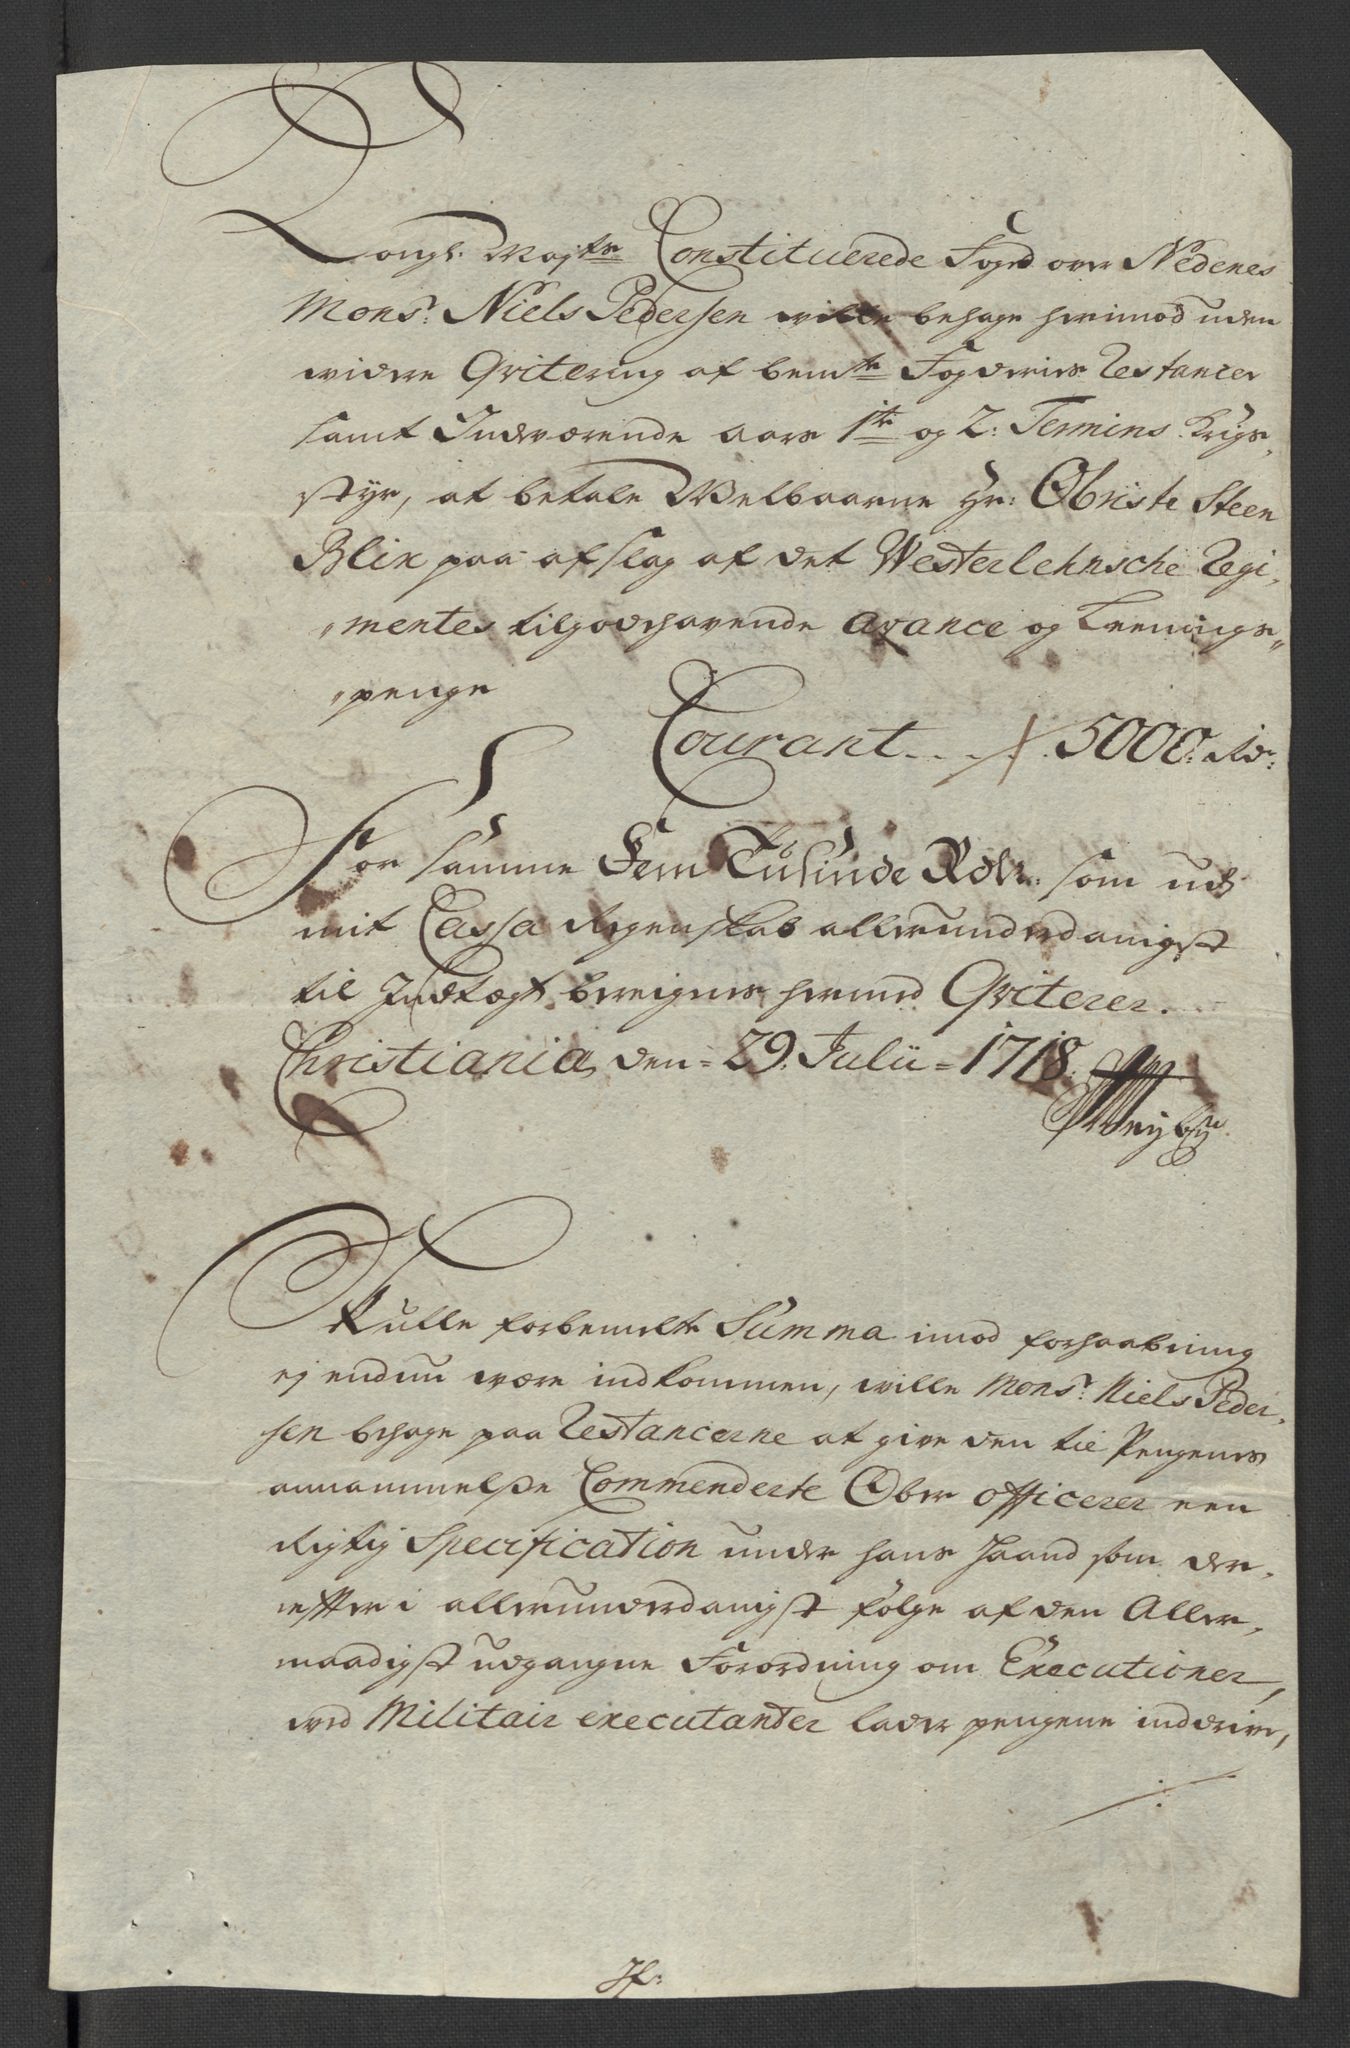 Kongl: Maj:ts Constituerede Foged over Nedenes
Mons:r Niels Pedersen wille behage herimod uden
widere Qvitering af bem:te Fogderies Restancer
samt Indværende aars 1:te og 2: Termins Krigs,
styr, at betale Welbaarne Hr: Obriste Steen
Blix paa afslag af det Westerlehnsche Regi,
"mentes tilgodehavende Avance og Leenings"
"penge
Courant . . . 5000: Rdr:
For samme Fem Tusinde Rdlr: som udj
mit Cassa Regenskab allerunderdanigst
til Indtægt bereignes hermed Qviterer.
Christiania den = 29: Julii = 1718.
Skulle forbemelte Summa imod forhaabning
ej endnu være indkommen, wille Mons:r Niels Peder,
sen behage paa Restancerne at give den til Pengenes
annammelße Commenderte Ober officerer een
Rigtig Specification under hans Haand som der,
effter i allerunderdanigst følge af den Aller,
naadigst udgangne Forordning om Executioner,
ved Militair executanter lader pengene inddrive,